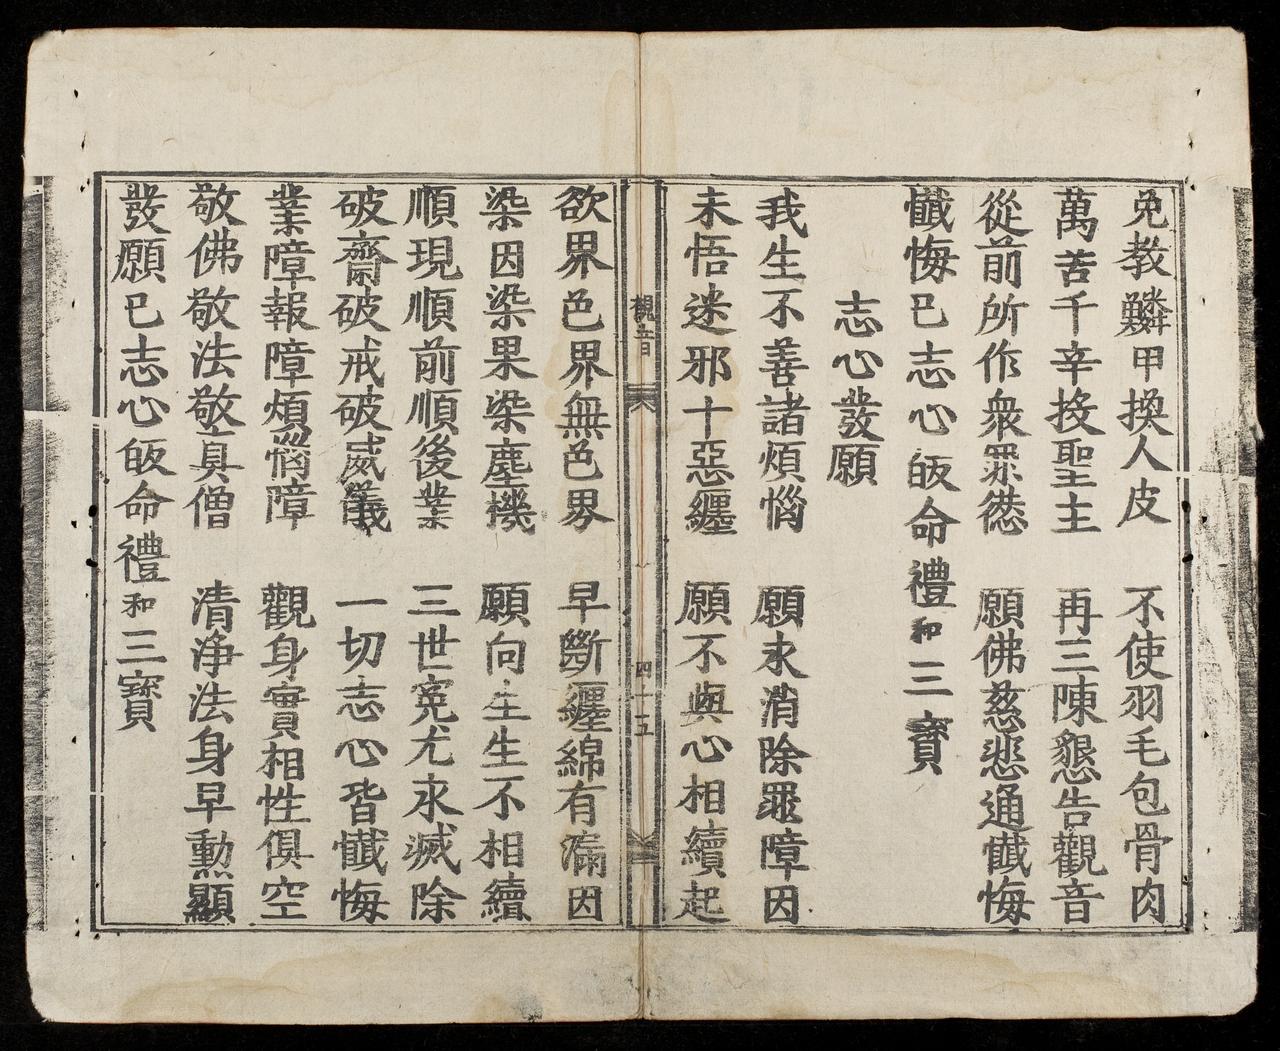 免教鱗甲換人皮　不使羽毛包骨肉
萬苦千辛投聖主　再三陳懇告觀音
從前所作衆罪愆　願佛慈悲通懺悔
懺悔已志心皈命禮和三寶
志心發願
我生不善諸煩惱　願永消除罪障因
未悟迷邪十惡纏　願不與心相續起
觀音　四十五
欲界色界無色界　早斷纏綿有漏因
染因染果染塵機　願向生生不相續
順現順前順後業　三世寃尤永滅除
破齋破戒破威儀　一切志心皆懺悔
業障報障煩惱障　觀身實相性俱空
敬佛敬法敬眞僧　清淨法身早勳顯
發願已志心皈命禮和三寶